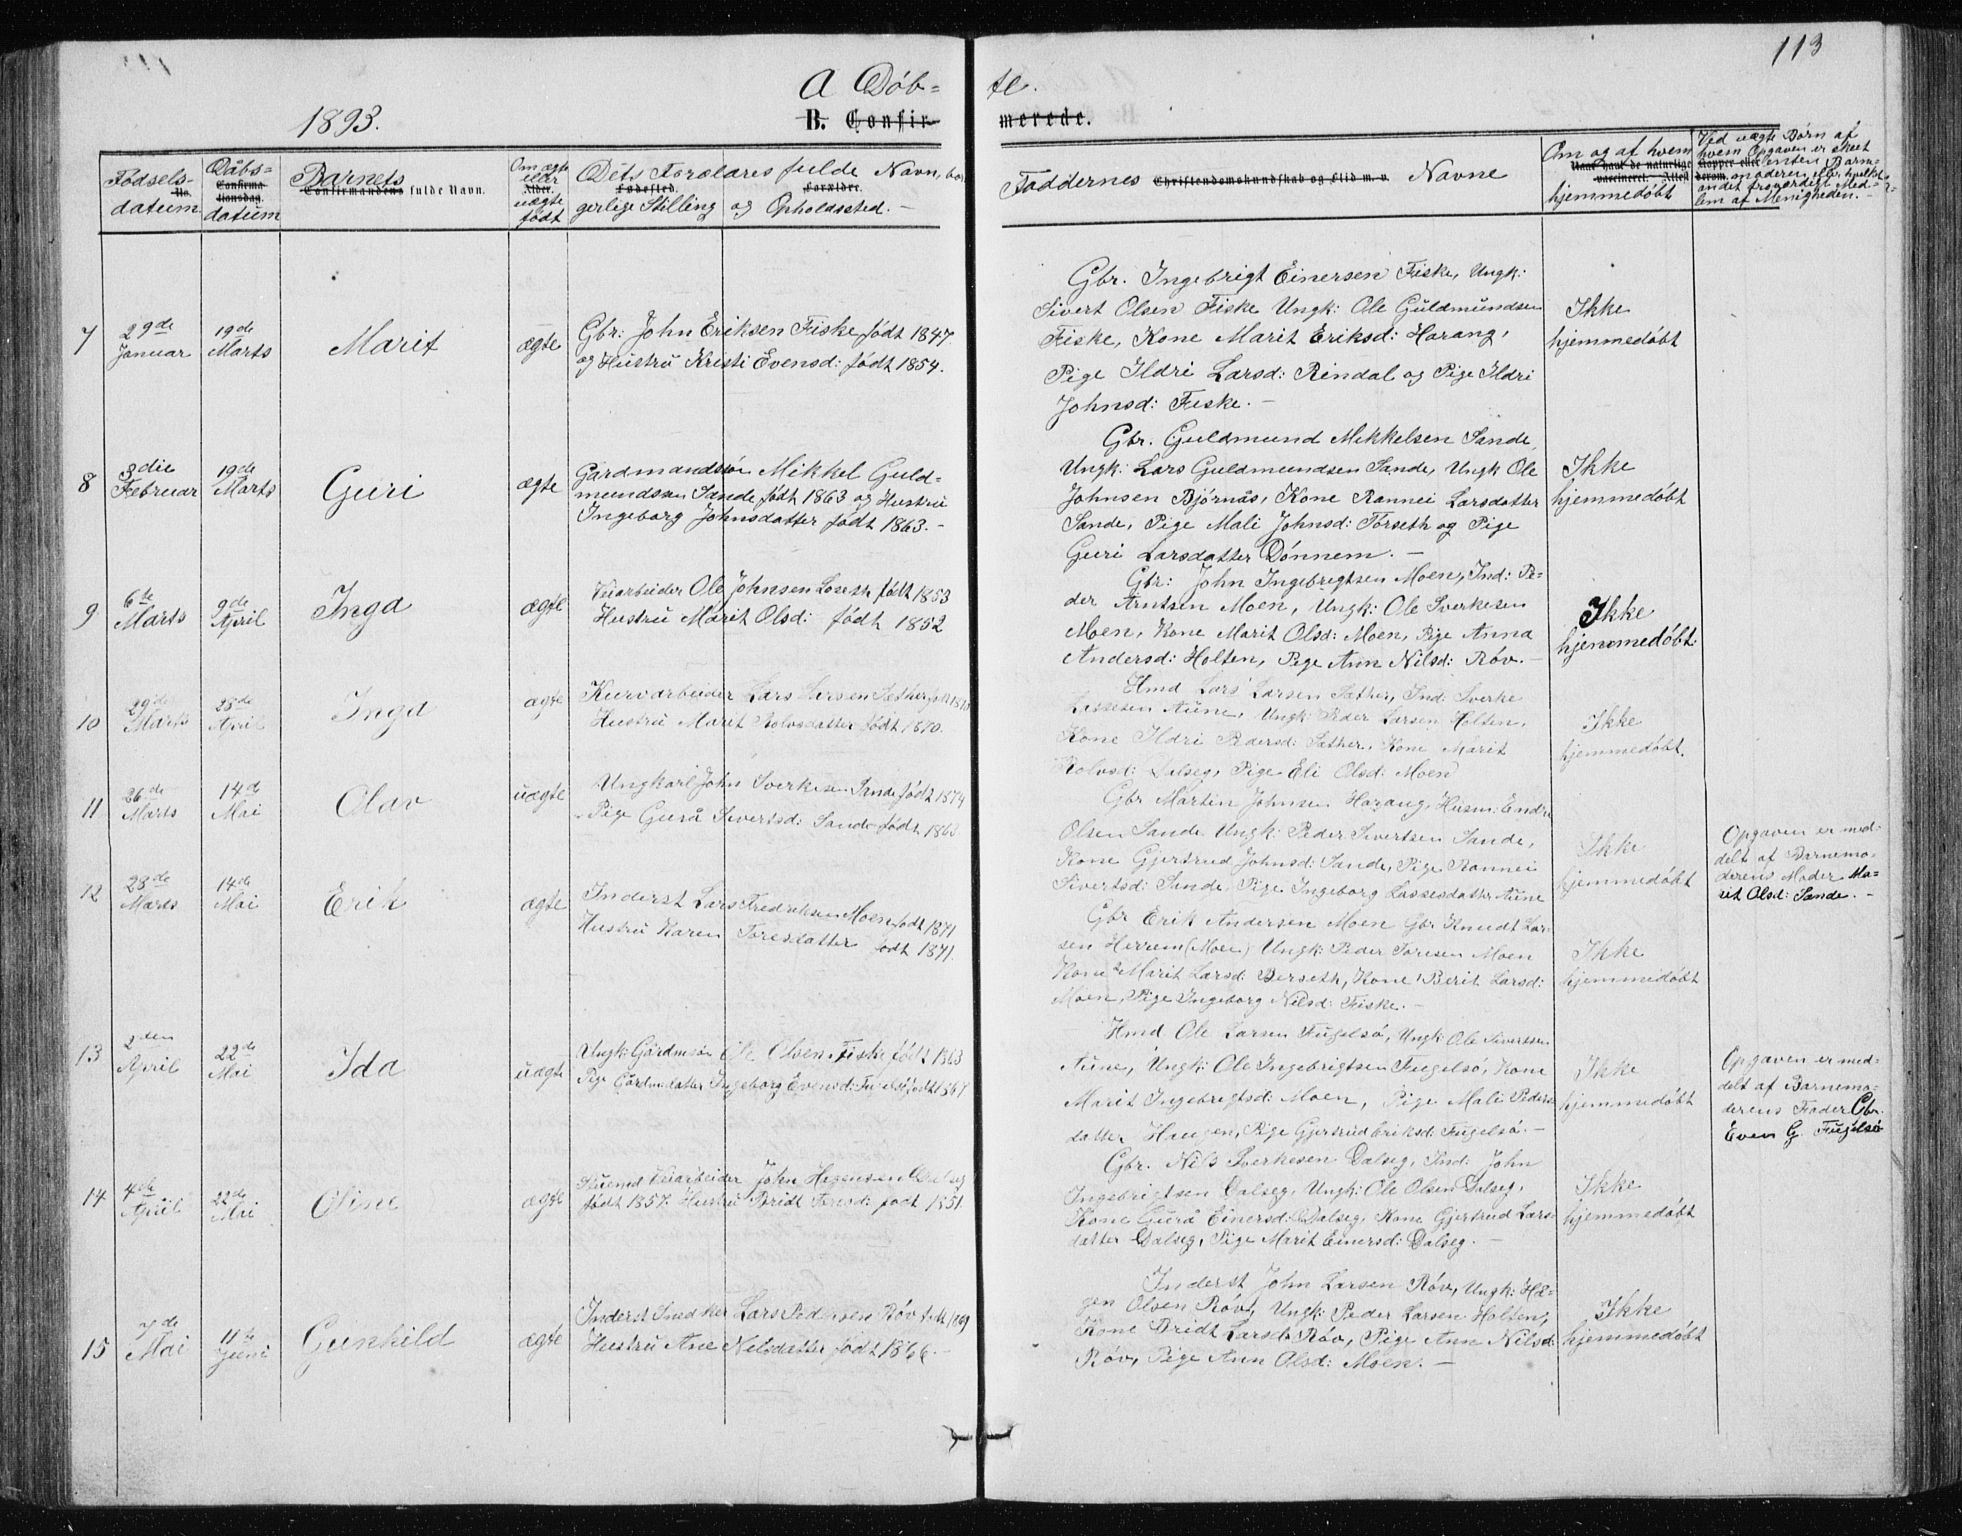 113
A Döb= te.
1893.
B. Confir- merede.
Födsels- No. datum
Daabs- Confirma tionsdag. datum
Barnets Confirmandens fulde Navn.
Om ægte eller Alder. uægte født
Dets Forældres fulde Navn, bor-
Fødested. Forældre.
gerlige Stilling og Opholdssted. —
Faddernes Christendomskundskab og Flid m. v. Navne
Om og af hvem
hjemmedöbt
Ved uægte Börn af
hvem Opgaven er skeet
lem af Menigheden. —
7
29de Januar
19de Marts
Marit
ægte
Gbr: John Eriksen Fiske født 1847
og Hustru Kristi Evensd: født 1854.
Gbr. Ingebrigt Einersen Fiske, Ungk:
Sivert Olsen Fiske Ungk: Ole Guldmundsen
Fiske, Kone Marit Eriksd: Harang,
Pige Ildri Larsd: Rindal og Pige Ildri
Johnsd: Fiske. —
Ikke
hjemmedöbt
8
3die Februar
19de Marts
Guri
ægte
Gårdmandsön Mikkel Guld-
mundsen Sande født 1863 og Hustru
Ingeborg Johnsdatter født 1863. -
Gbr. Guldmund Mikkelsen Sande
Ungk: Lars Guldmundsen Sande, Ungk Ole
Johnsen Bjórnås, Kone Rannei Larsdatter
Sande, Pige Mali Johnsd: Torseth og Pige
Guri Larsdatter Dónnem. —
Ikke
hjemmedöbt
9
6te Marts
9de April
Inga
ægte
Veiarbeider Ole Johnsen Loseth født 1853
Hustru Marit Olsd: født 1852
Gbr: John Ingebrigtsen Moen, Ind: Pe-
der Arntsen Moen, Ungk: Ole Sverkesen
Moen, Kone Marit Olsd: Moen, Pige Anna
Andersd: Holten, Pige Ann Nilsd: Röv. —
Ikke
hjemmedöbt.
10
29de Marts
23de April
Inga
ægte
Lars Larsen Sæther
Hustru Marit Rolvsdatter født 1870.
Hmd Lars Larsen Sæther, Ind: Sverke
Lassesen Aune, Ungk: Peder Larsen Holten,
Kone Ildri Pedersd: Sæther, Kone Marit
Rolvsd: Dalseg, Pige Eli Olsd: Moen
Ikke
hjemmedöbt.
11
26de Marts
14de Mai
Olav
uægte
Ungkarl John Sverkesen Sande født 1874
Pige Gurå Sivertsd: Sande født 1863
Gbr Martin Johnsen Harang, Husm: Endre
Olsen Sande Ungk: Peder Sivertsen Sande,
Kone Gjertrud Johnsd: Sande, Pige Rannei
Sivertsd: Sande, Pige Ingeborg Lassesdatter Aune
Ikke
hjemmedöbt
Opgaven er med-
delt af Barnemo-
derens Moder Ma-
rit Olsd: Sande. —
12
28de Marts
14de Mai
Erik
ægte
Inderst Lars Fredriksen Moen født 1871
Hustru Karen Toresdatter født 1871.
Gbr Erik Andersen Moen Gbr Knudt Lar-
sen Herrem (Moen) Ungk: Peder Toresen Moen
Kone 2 Marit Larsd: Berseth, Kone 1 Berit Larsd:
Moen, Pige Ingeborg Nilsd: Fiske. —
Ikke
hjemmedöbt
13
2den April
22de Mai
Ida
uægte
Ungk: Gårdmsön Ole Olsen Fiske født 1863
Pige Gårdmdatter Ingeborg Evensd: Fugelsö født 1867
Hmd Ole Larsen Fugelsö, Ungk: Ole Sivertsen
Aune, Ungk: Ole Ingebrigtsen Fugelsö, Kone
Marit Ingebrigtsd: Moen, Pige Mali Peders-
datter Haugen, Pige Gjertrud Eriksd: Fugelsö. —
Ikke
hjemmedöbt
Opgaven er med-
delt af Barnemo-
derens Fader Gbr.
Even G. Fugelsö
14
4de April
22de Mai
Oline
ægte
Veiarbeider John Hagensen Dalseg
født 1857. Hustru Bridt Toresd: født 1851.
Gbr. Nils Sverkesen Dalseg, Ind: John
Ingebrigtsen Dalseg, Ungk: Ole Olsen Dalseg,
Kone Gurå Einersd: Dalseg, Kone Gjertrud Lars-
datter Dalseg, Pige Marit Einersd: Dalseg. —
Ikke
hjemmedöbt
15
7de Mai
11te Juni
Gunhild
ægte
Inderst Snedker Lars Pedersen Röv født 1869
Hustru Ane Nilsdatter født 1866. —
Inderst John Larsen Röv, Ungk: Ha-
gen Olsen Röv, Ungk: Peder Larsen Holten,
Kone Bridt Larsd: Röv, Pige Ann Nilsd:
Röv, Pige Ann Olsd: Moen. —
Ikke
hjemmedöbt